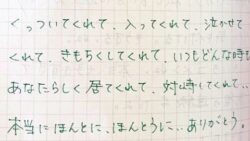 くっついてくれて、入ってくれて、泣かせて
くれて、きもちくしてくれて、いつもどんな時も
あなたらしく居てくれて、対峙してくれて…
本当にほんとに、ほんとうに…ありがとう。